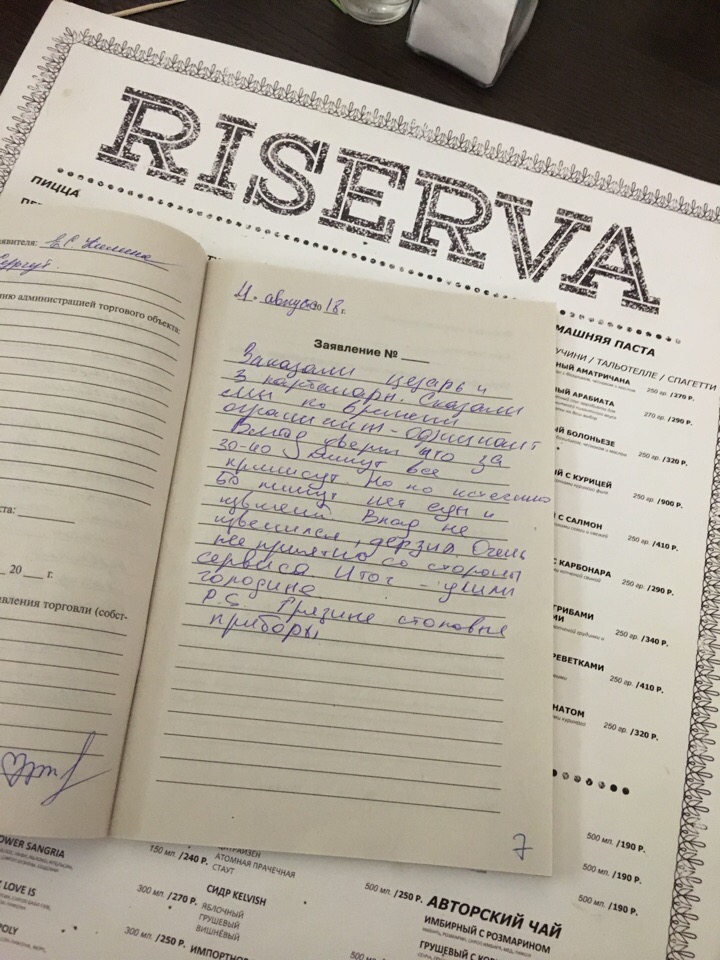 RISERVA
ПИЦЦА
явителя:
Сургут.
нию администрацией торгового объекта:
ста:
20 г.
авления торговли (собст-
4. августа 2018 г.
Заявление №
Заказали цезарь и
3 карбонары. Сказали
мы по времени
ограничит - официант
Влад уверил что за
30-40 минут все
принесут. Но по истечению
60 минут нет еды и
извинений. Влад не
извинился, дерзил. Очень
не приятно со стороны
сервиса Итог - ушли
голодные
P.S. Грязные столовые
приборы
7
МАШНЯЯ ПАСТА
УЧИНИ / ТАЛЬОТЕЛЛЕ / СПАГЕТТИ
НЫЙ АМАТРИЧАНА
250 гр. /270 Р.
ЫЙ АРАБИАТА
270 гр. /290 Р.
ЫЙ БОЛОНЬЕЗЕ
250 гр. /320 Р.
Й С КУРИЦЕЙ
250 гр. /900 Р.
Й С САЛМОН
250 гр. /410 Р.
С КАРБОНАРА
250 гр. /290 Р.
ГРИБАМИ
250 гр. /340 Р.
РЕВЕТКАМИ
250 гр. /410 Р.
НАТОМ
250 гр. /320 Р.
500 мл. /190 Р.
500 мл. /190 Р.
500 мл. /190 Р.
OWER SANGRIA
LOVE IS
POLY
150 мл. /240 Р.
АТОМНАЯ ПРАЧЕЧНАЯ
СТАУТ
300 мл. /270 Р.
СИДР KELVISH
ЯБЛОЧНЫЙ
ГРУШЕВЫЙ
ВИШНЁВЫЙ
300 мл. /250 Р.
ИМПОРТНОЕ
500 мл. /250 Р.
АВТОРСКИЙ ЧАЙ
ИМБИРНЫЙ С РОЗМАРИНОМ
ГРУШЕВЫЙ С КОР